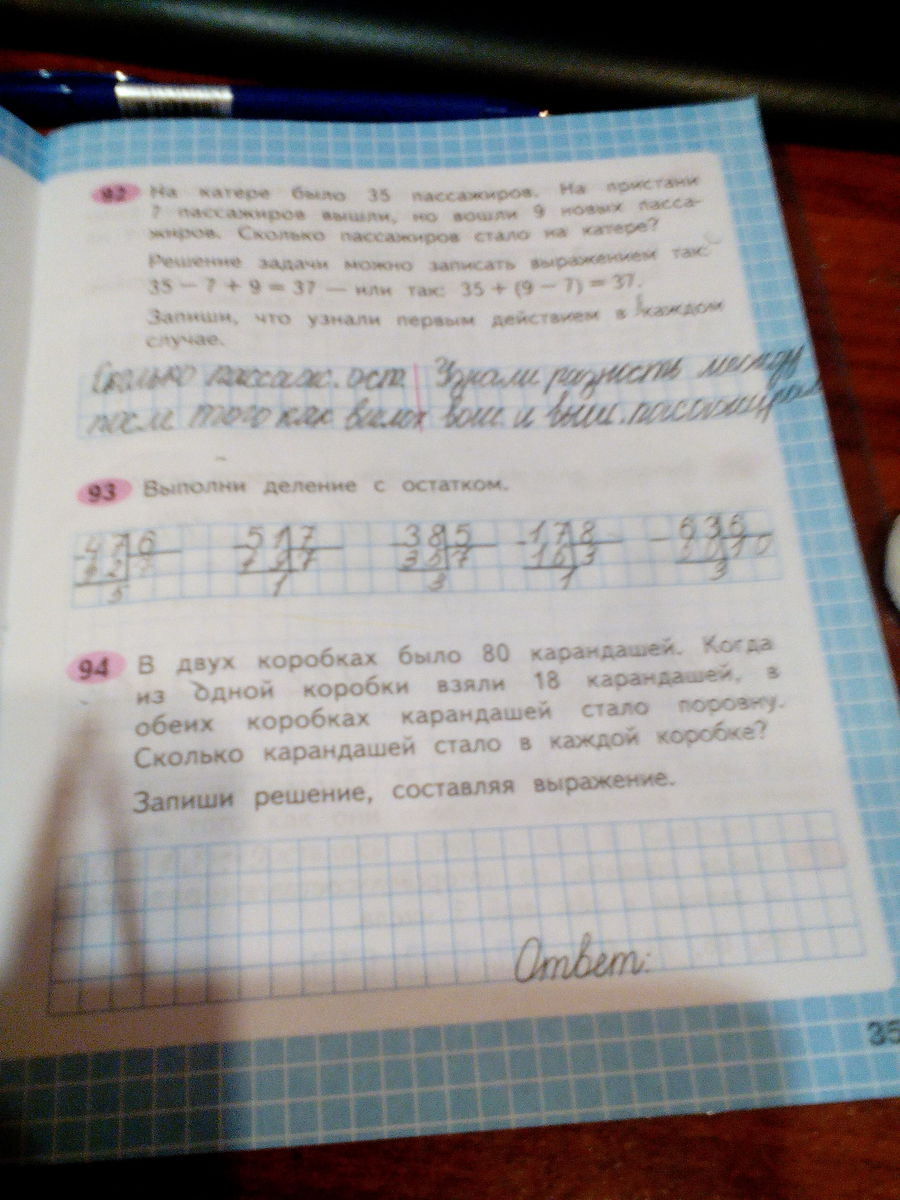 92 На катере было 35 пассажиров. На пристани
7 пассажиров вышли, но вошли 9 новых пасса-
жиров. Сколько пассажиров стало на катере?
Решение задачи можно записать выражением так:
35 − 7 + 9 = 37 — или так: 35 + (9 − 7) = 37.
Запиши, что узнали первым действием в каждом
случае.
Сколько пассаж. ост. Узнали разность между
после того как вош. и выш. пассажирами
93 Выполни деление с остатком.
47 6 51 7 38 5 17 8 63 6
42 7 35 7 16 60 10
5 3 1 3
94 В двух коробках было 80 карандашей. Когда
из одной коробки взяли 18 карандашей, в
обеих коробках карандашей стало поровну.
Сколько карандашей стало в каждой коробке?
Запиши решение, составляя выражение.
Ответ:
35